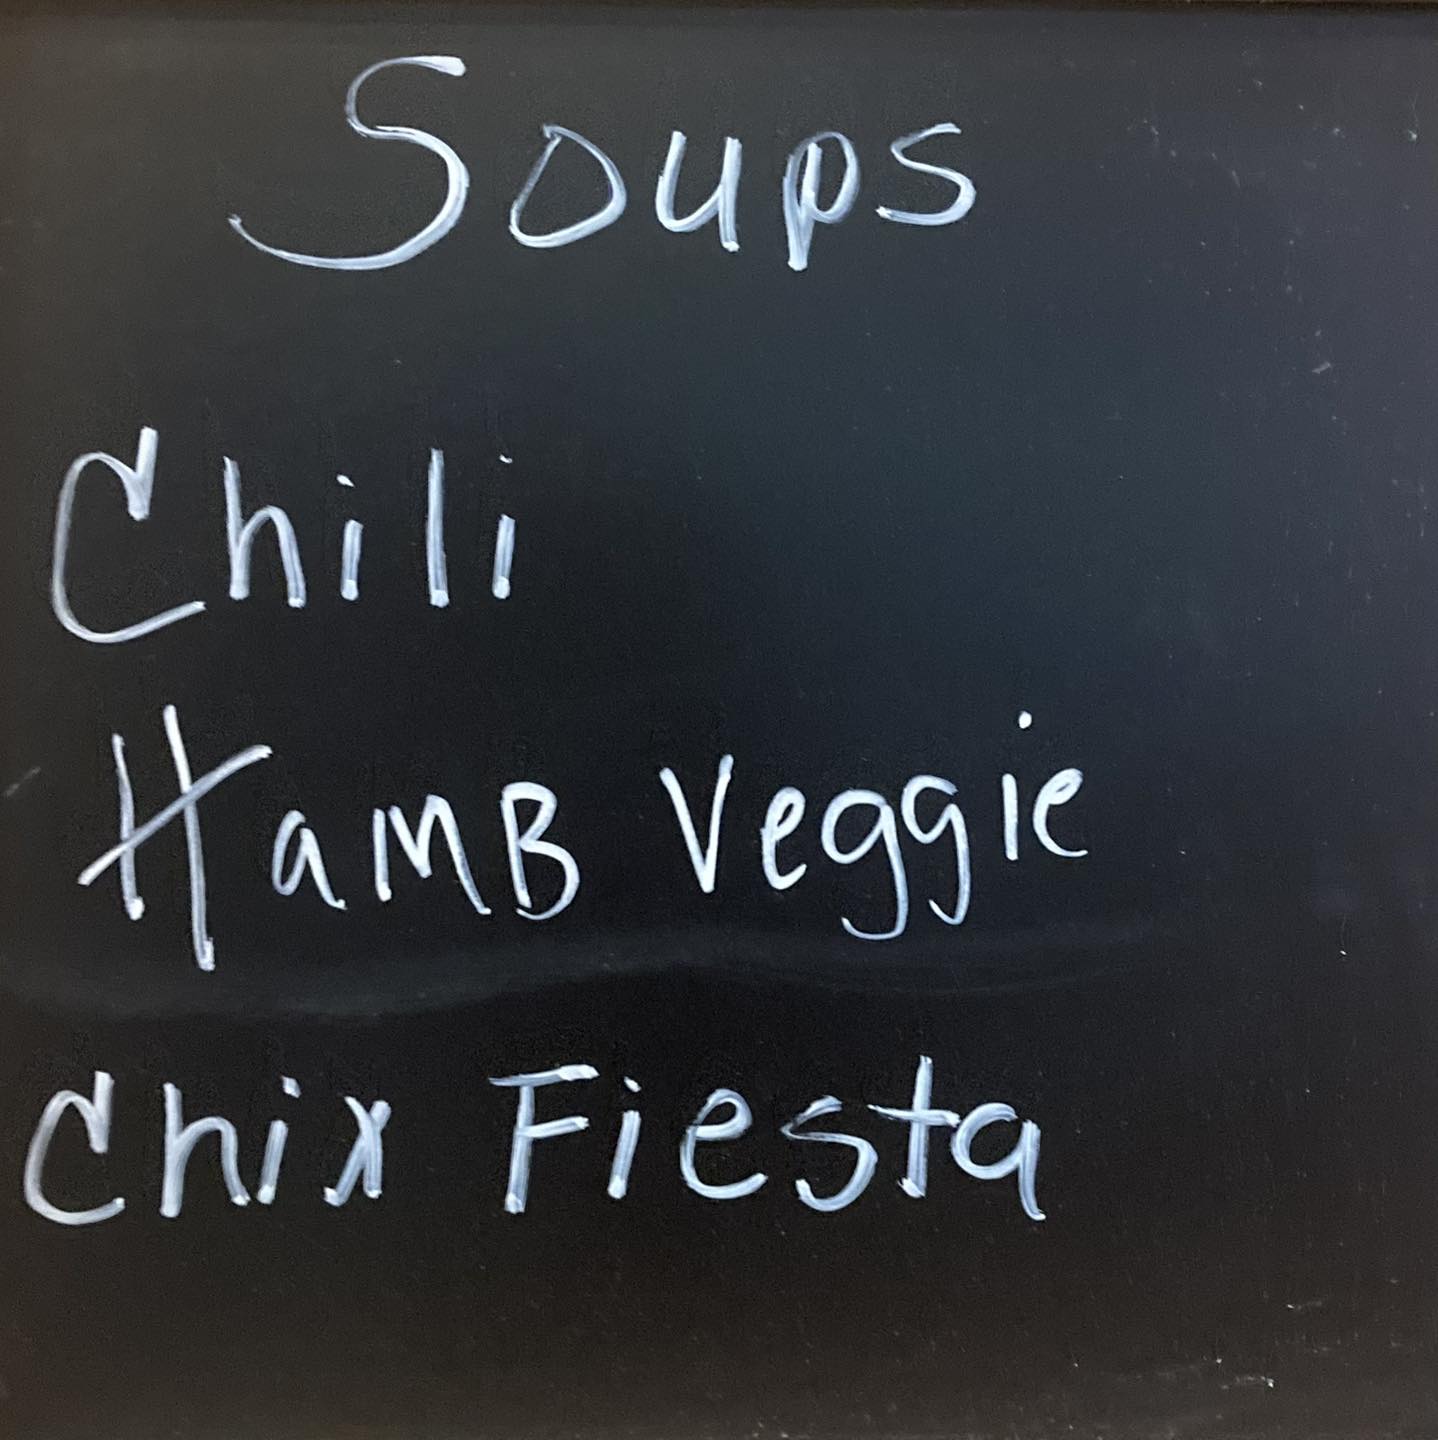 Soups
Chili
HamB Veggie
Chix Fiesta